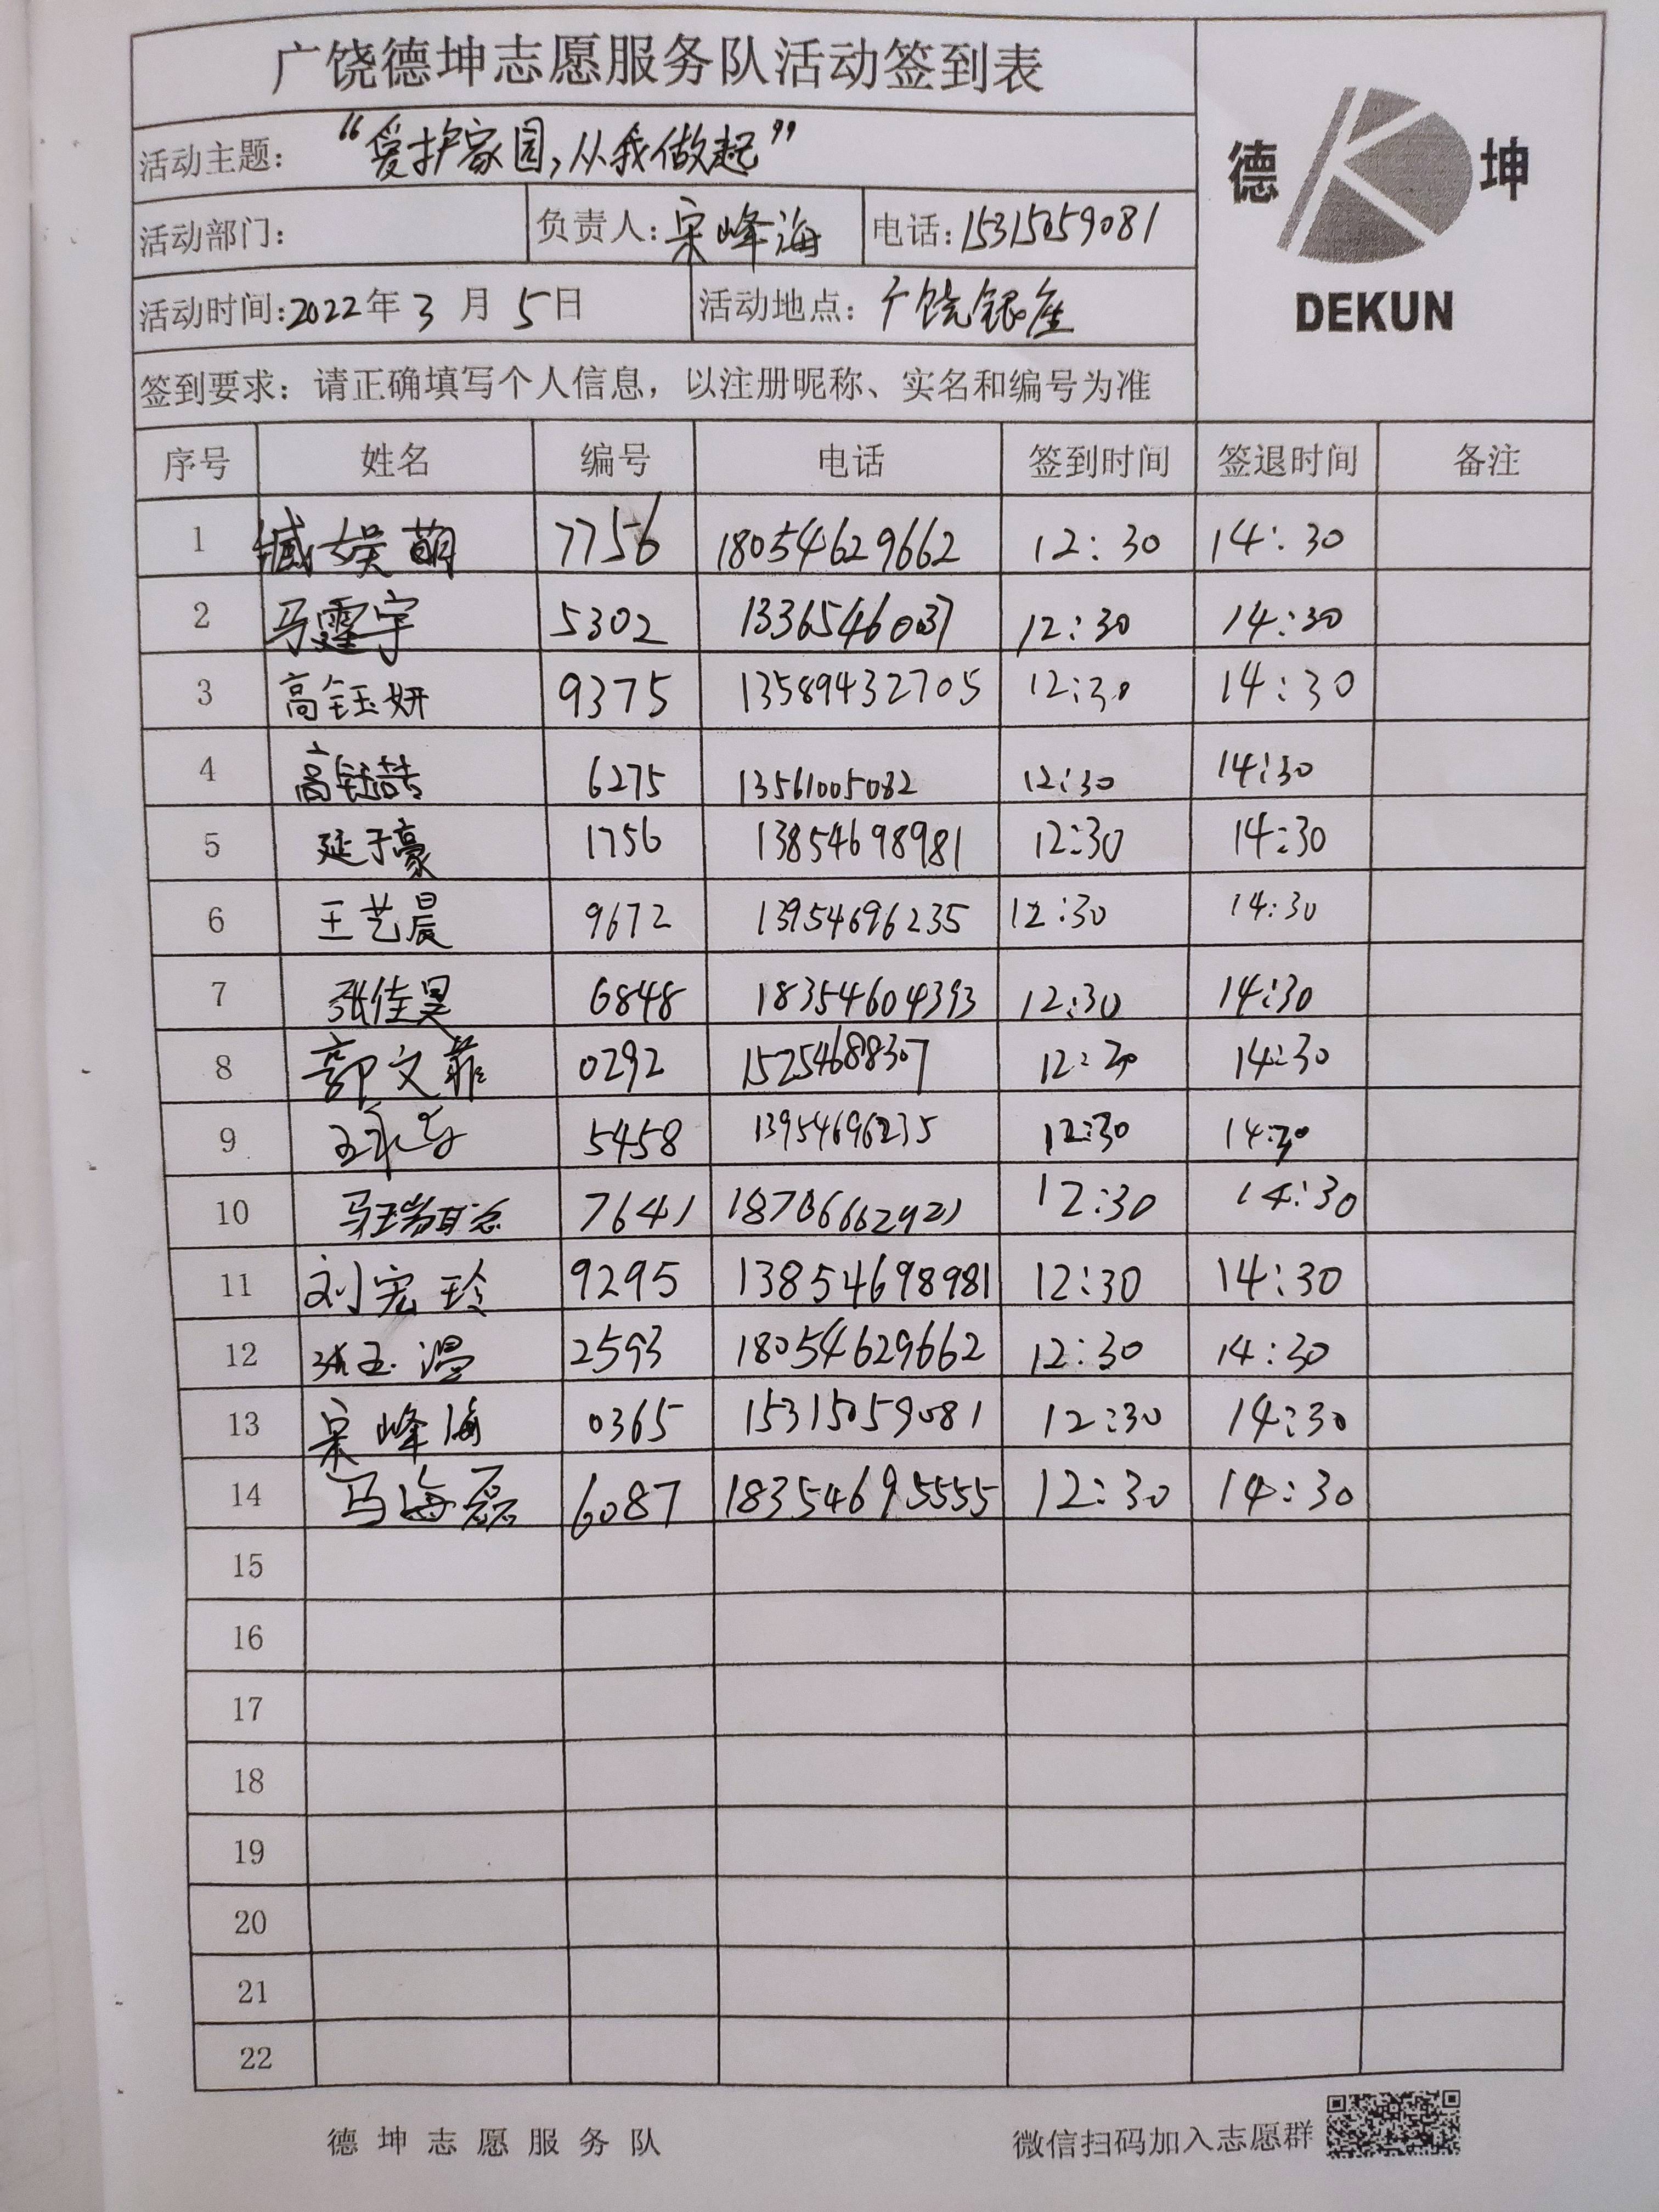 广饶德坤志愿服务队活动签到表
活动主题： “爱护家园,从我做起”
德 坤
DEKUN
活动部门： 负责人：宋峰海 电话：15315059081
活动时间：2022年3月5日 活动地点：广饶银座
签到要求：请正确填写个人信息，以注册昵称、实名和编号为准
序号 姓名 编号 电话 签到时间 签退时间 备注
1 臧娱萌 7756 18054629662 12:30 14:30
2 马霆宇 5302 12:30 14:30
3 高钰妍 9375 13589432705 12:30 14:30
4 高钰喆 6275 13561005082 12:30 14:30
5 延子豪 1756 13854698981 12:30 14:30
6 王艺晨 9672 13954696235 12:30 14:30
7 张佳昊 6848 18354604393 12:30 14:30
8 郭文菲 0292 15254688307 12:30 14:30
9 5458 13954696235 12:30 14:30
10 7641 18706662921 12:30 14:30
11 刘宏玲 9295 13854698981 12:30 14:30
12 张玉温 2593 18054629662 12:30 14:30
13 宋峰海 0365 15315059081 12:30 14:30
14 马海磊 6087 18354695555 12:30 14:30
15
16
17
18
19
20
21
22
德坤志愿服务队 微信扫码加入志愿群